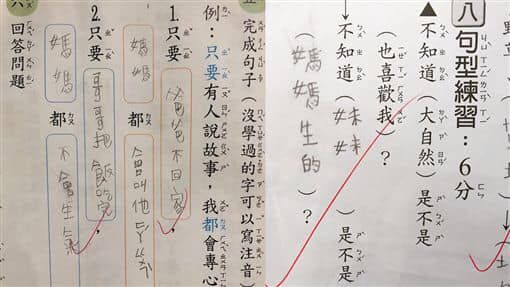 八 句型練習：6分
▲不知道（大自然）是不是
（也喜歡我）？
↓不知道（妹妹）是不是
（媽媽生的）？
五 完成句子（沒學過的字可以寫注音）
例：只要有人說故事，我都會專心
1.只要 爸爸不回家，
媽媽 都 會叫他
2.只要 哥哥把飯吃
媽媽 都 不會生氣
六 回答問題